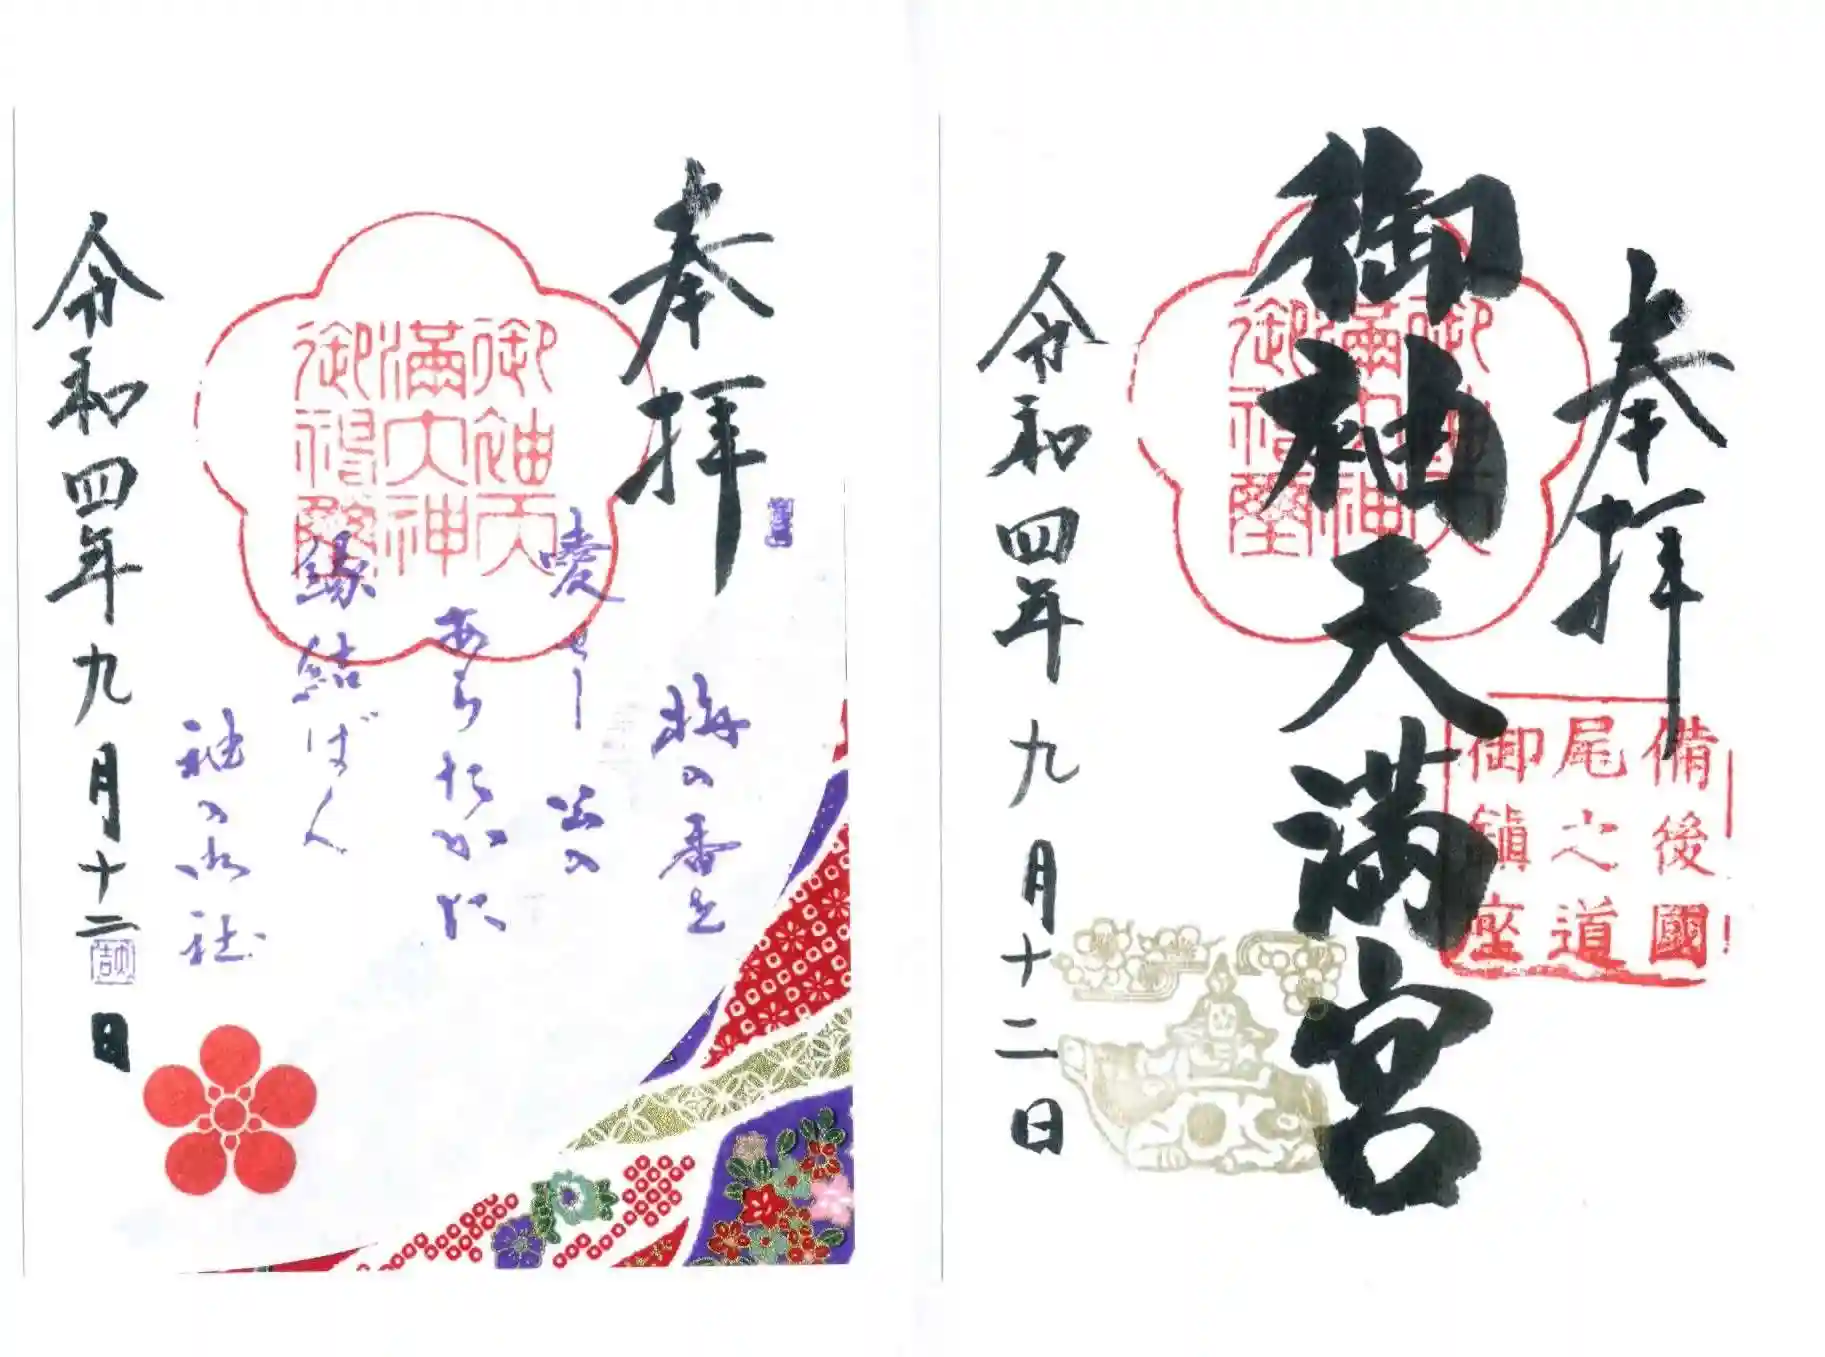 奉拝
備後國
尾之道
御鎮座
御袖天満宮
御袖天
満大神
令和四年九月十二日
奉拝
御袖天
満大神
梅の香を
愛せし 公の
あらたかに
縁結ばん
袖の御社
令和四年九月十二日